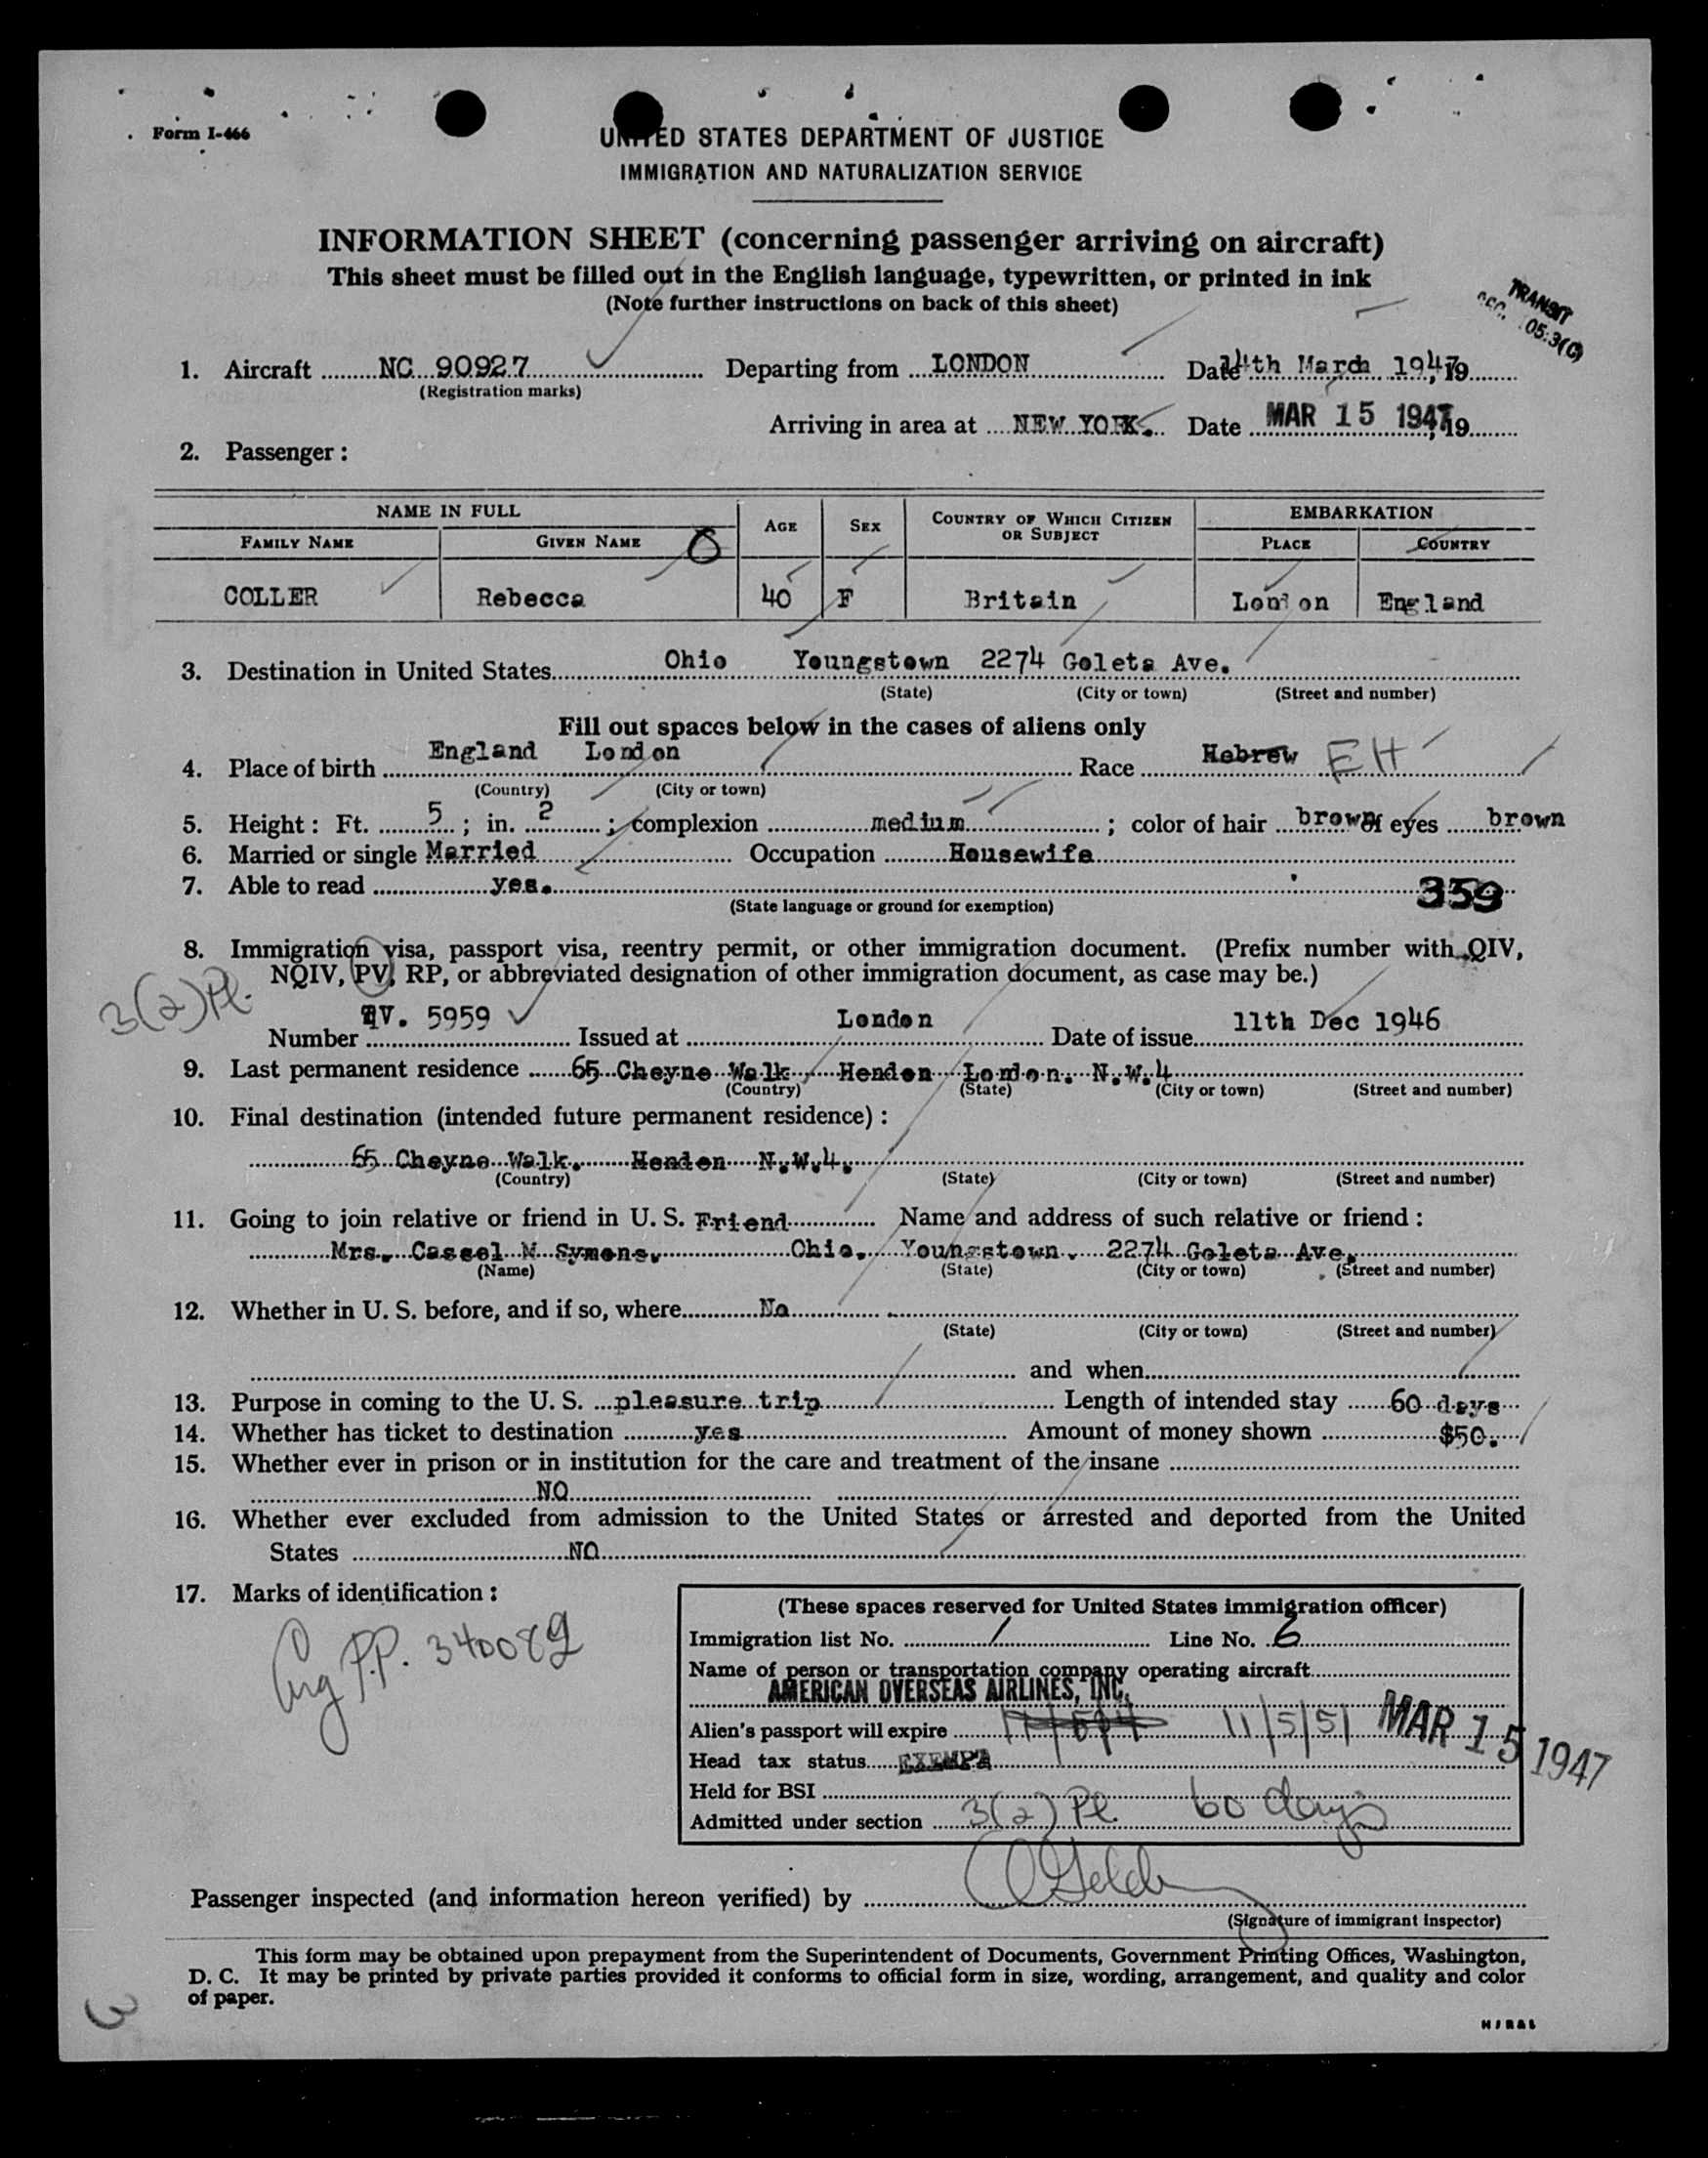 Form I-466
UNITED STATES DEPARTMENT OF JUSTICE
IMMIGRATION AND NATURALIZATION SERVICE
INFORMATION SHEET (concerning passenger arriving on aircraft)
This sheet must be filled out in the English language, typewritten, or printed in ink
(Note further instructions on back of this sheet)
TRANSIT
SEC. 105.3(C)
1. Aircraft NC 90927 Departing from LONDON Date 14th March 1947, 19
(Registration marks)
Arriving in area at NEW YORK. Date MAR 15 1947, 19
2. Passenger:
NAME IN FULL AGE SEX COUNTRY OF WHICH CITIZEN OR SUBJECT EMBARKATION
FAMILY NAME GIVEN NAME PLACE COUNTRY
COLLER Rebecca 40 F Britain London England
3. Destination in United States Ohio Youngstown 2274 Goleta Ave.
(State) (City or town) (Street and number)
Fill out spaces below in the cases of aliens only
4. Place of birth England London Race Hebrew EH
(Country) (City or town)
5. Height: Ft. 5; in. 2; complexion medium; color of hair brown of eyes brown
6. Married or single Married Occupation Housewife
7. Able to read yes.
(State language or ground for exemption)
359
8. Immigration visa, passport visa, reentry permit, or other immigration document. (Prefix number with QIV,
NQIV, PV, RP, or abbreviated designation of other immigration document, as case may be.)
3(2)Pl.
Number PV. 5959 Issued at London Date of issue 11th Dec 1946
9. Last permanent residence 65 Cheyne Walk Hendon London. N.W.4
(Country) (State) (City or town) (Street and number)
10. Final destination (intended future permanent residence):
65 Cheyne Walk. Hendon N.W.4.
(Country) (State) (City or town) (Street and number)
11. Going to join relative or friend in U. S. Friend Name and address of such relative or friend:
Mrs. Cassel M Symons. Ohio. Youngstown. 2274 Goleta Ave.
(Name) (State) (City or town) (Street and number)
12. Whether in U. S. before, and if so, where No
(State) (City or town) (Street and number)
and when
13. Purpose in coming to the U. S. pleasure trip Length of intended stay 60 days
14. Whether has ticket to destination yes Amount of money shown $50.
15. Whether ever in prison or in institution for the care and treatment of the insane
NO
16. Whether ever excluded from admission to the United States or arrested and deported from the United
States NO
17. Marks of identification:
P.P. 340089
(These spaces reserved for United States immigration officer)
Immigration list No. 1 Line No. 6
Name of person or transportation company operating aircraft
AMERICAN OVERSEAS AIRLINES, INC.
Alien's passport will expire 11/5/51 MAR 15 1947
Head tax status EXEMPT
Held for BSI
Admitted under section 3(2) Pl. 60 days
Passenger inspected (and information hereon verified) by
(Signature of immigrant inspector)
This form may be obtained upon prepayment from the Superintendent of Documents, Government Printing Offices, Washington,
D. C. It may be printed by private parties provided it conforms to official form in size, wording, arrangement, and quality and color
of paper.
3